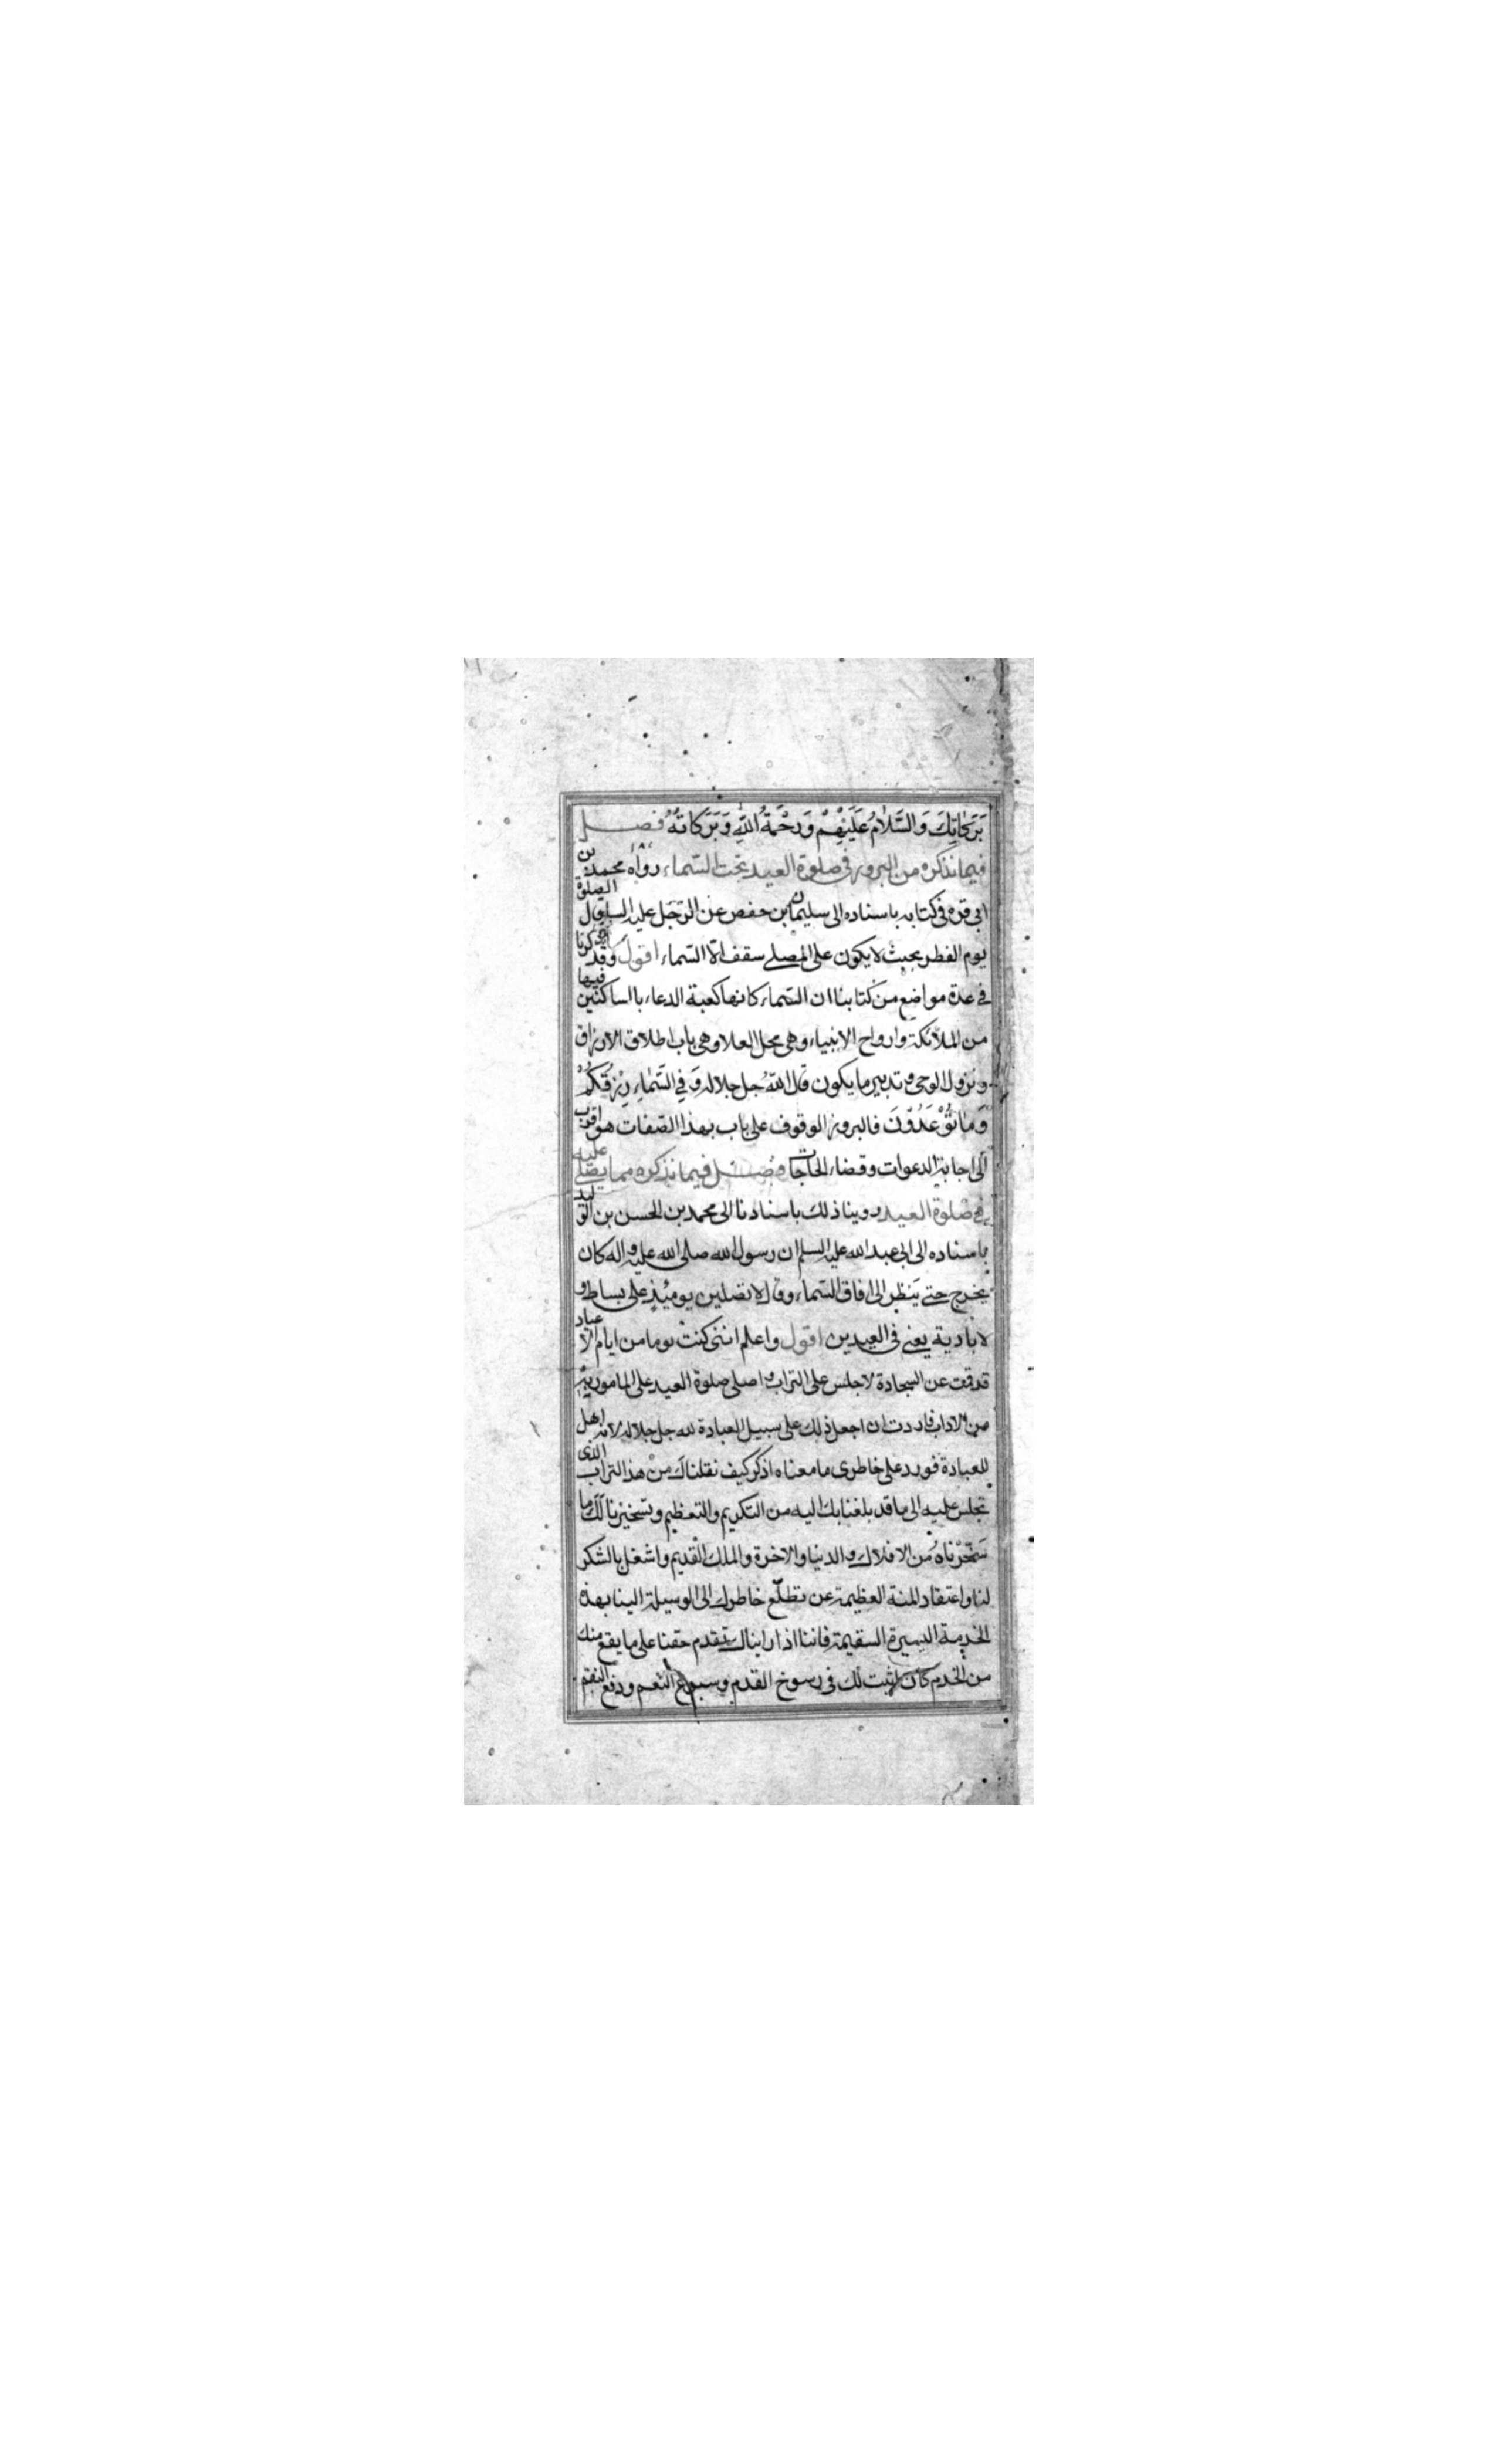 بَرَكاتِكَ وَالسَّلامُ عَلَيْهِمْ وَرَحْمَةُ اللهِ وَبَرَكاتُهُ فصل
فيما نذكره من البروز فى صلوة العيد تحت السّماء رواه محمد بن
ابى قره فى كتابه باسناده الى سليمان بن حفص عن الرّجل عليه السلم قال الصلوة
يوم الفطر بحيث لا يكون على المصلى سقف الّا السّماء اقول وقد ذكرنا
فى عدة مواضع من كتابنا ان السّماء كانها كعبة الدعاء بالساكنين فيها
من الملائكة وارواح الانبياء وهى محل العلا وهى باب اطلاق الارزاق
ونزول الوحى وتدبير ما يكون قال اللهُ جل جلاله وَفِي السَّماءِ رِزْقُكُمْ
وَمَا تُوْعَدُوْنَ فالبروز الوقوف على باب بهذا الصّفات هو اقرب
الى اجابة الدعوات وقضاء الحاجات فصل فيما نذكره مما يصلى عليه
فى صلوة العيد روينا ذلك باسنادنا الى محمد بن الحسن بن الوليد
باسناده الى ابى عبد الله عليه السلم ان رسول الله صلى الله عليه واله كان
يخرج حتى ينظر الى افاق السّماء وقال لا تصلين يومئذٍ على بساط و
لا بادية يعنى فى العيدين اقول واعلم اننى كنت يوما من ايام الاعياد
قد قمت عن السجادة لاجلس على التراب واصلى صلوة العيد على المامور به
من الاداب فاردت ان اجعل ذلك على سبيل العبادة لله جل جلاله لانه اهل
للعبادة فورد على خاطرى ما معناه اذكر كيف نقلناك من هذا التراب الذى
تجلس عليه الى ما قد بلغنا بك اليه من التكريم والتعظيم وتسخيرنا لك ما
سَخّرْناهُ من الافلاك والدنيا والاخرة والملك القديم واشغل بالشكر
لنا واعتقاد المنة العظيمة عن تطلّع خاطرك الى الوسيلة الينا بهذه
الخدمة اليسيرة السقيمة فاننا اذا رايناك تقدم حقنا على ما يقع منك
من الخدم كان اثبت لك فى رسوخ القدم وسبوغ النعم ودفع النقم